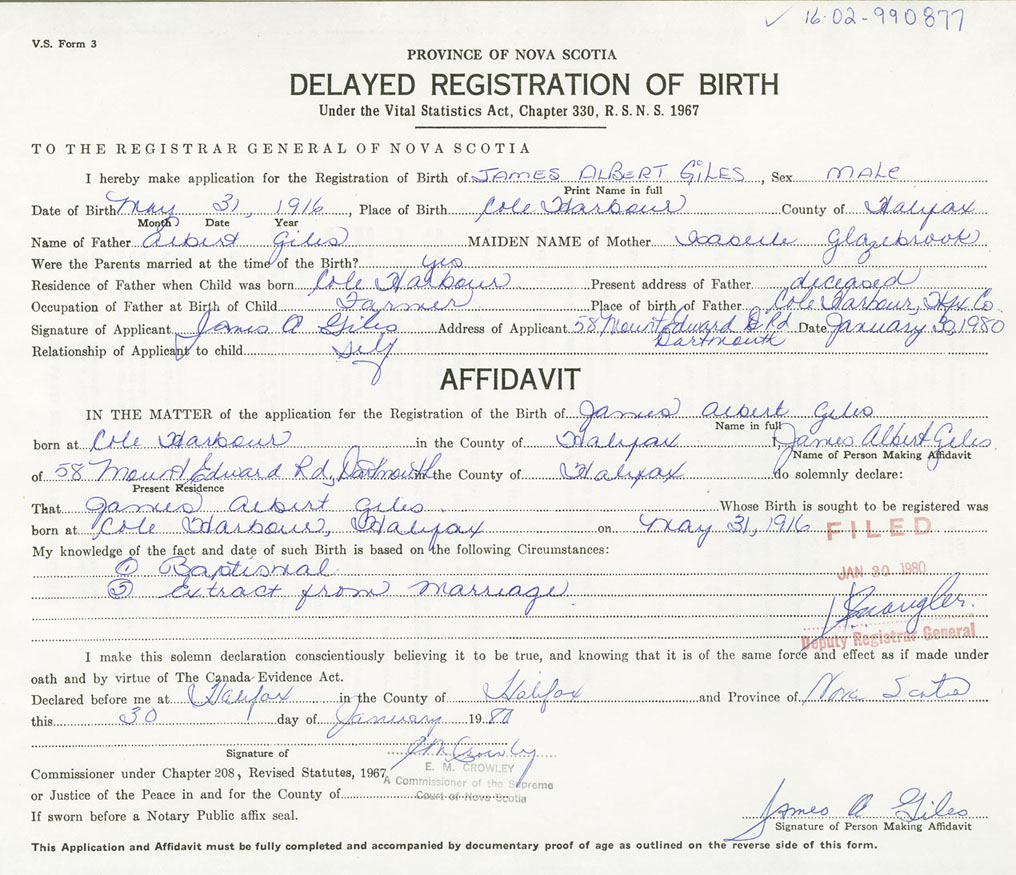 ✓ 16-02-990877
V.S. Form 3
PROVINCE OF NOVA SCOTIA
DELAYED REGISTRATION OF BIRTH
Under the Vital Statistics Act, Chapter 330, R. S. N. S. 1967
TO THE REGISTRAR GENERAL OF NOVA SCOTIA
I hereby make application for the Registration of Birth of JAMES ALBERT GILES, Sex MALE
Print Name in full
Date of Birth May 31, 1916, Place of Birth Cole Harbour County of Halifax
Month Date Year
Name of Father Albert Giles MAIDEN NAME of Mother Glazebrook
Were the Parents married at the time of the Birth? yes
Residence of Father when Child was born Cole Harbour Present address of Father deceased
Occupation of Father at Birth of Child Farmer Place of birth of Father Cole Harbour, Hfx. Co.
Signature of Applicant James A Giles Address of Applicant 58 Mount Edward Rd Date January 30, 1980
Dartmouth
Relationship of Applicant to child self
AFFIDAVIT
IN THE MATTER of the application for the Registration of the Birth of James Albert Giles
Name in full
born at Cole Harbour in the County of Halifax I, James Albert Giles
Name of Person Making Affidavit
of 58 Mount Edward Rd, Dartmouth in the County of Halifax do solemnly declare:
Present Residence
That James Albert Giles Whose Birth is sought to be registered was
born at Cole Harbour, Halifax on May 31, 1916
FILED
My knowledge of the fact and date of such Birth is based on the following Circumstances:
① Baptismal
JAN 30 1980
② extract from marriage
Deputy Registrar General
I make this solemn declaration conscientiously believing it to be true, and knowing that it is of the same force and effect as if made under
oath and by virtue of The Canada Evidence Act.
Declared before me at Halifax in the County of Halifax and Province of Nova Scotia
this 30 day of January 1980
Signature of EM Crowley
E. M. CROWLEY
Commissioner under Chapter 208, Revised Statutes, 1967
A Commissioner of the Supreme
or Justice of the Peace in and for the County of
Court of Nova Scotia
If sworn before a Notary Public affix seal.
James A Giles
Signature of Person Making Affidavit
This Application and Affidavit must be fully completed and accompanied by documentary proof of age as outlined on the reverse side of this form.